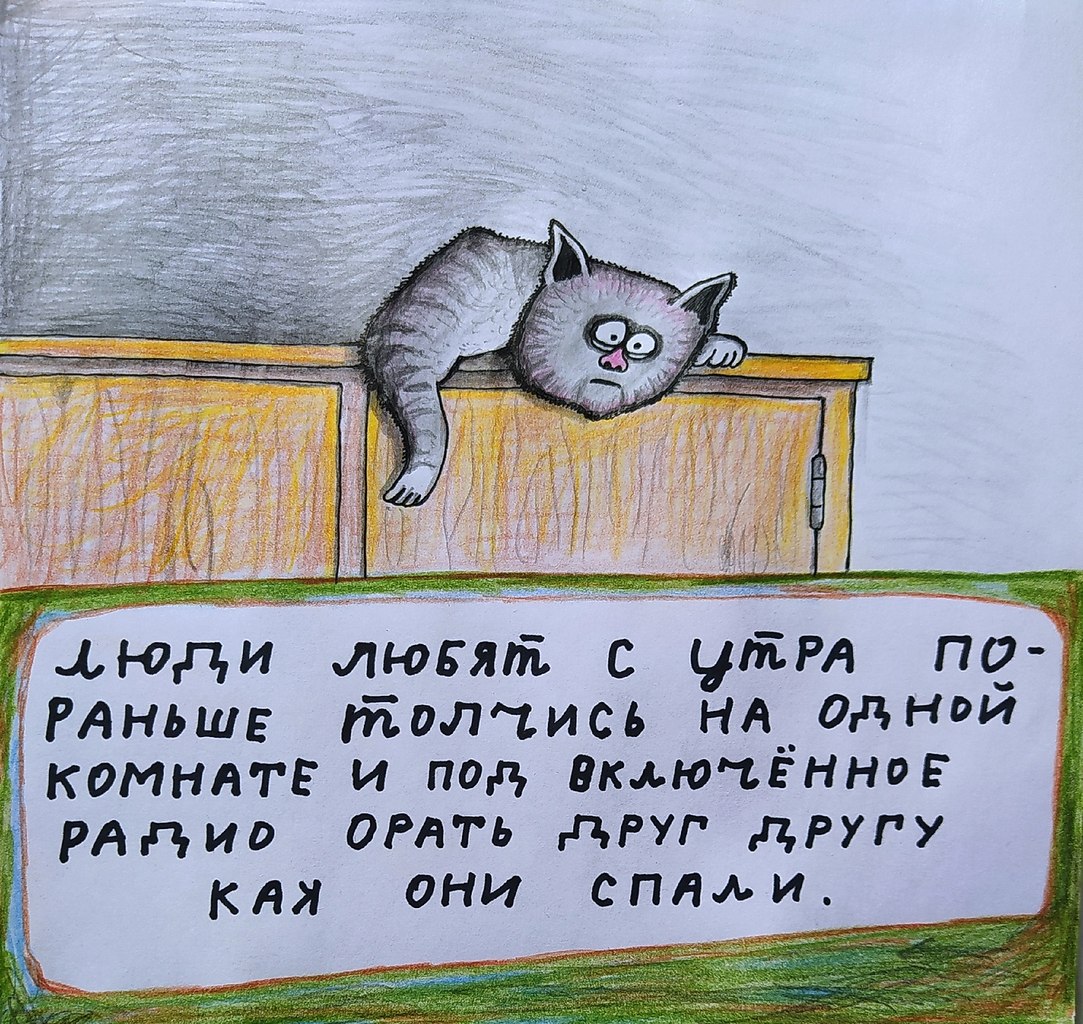 ЛЮДИ ЛЮБЯТ С УТРА ПО-
РАНЬШЕ ТОЛЧИСЬ НА ОДНОЙ
КОМНАТЕ И ПОД ВКЛЮЧЁННОЕ
РАДИО ОРАТЬ ДРУГ ДРУГУ
КАК ОНИ СПАЛИ.